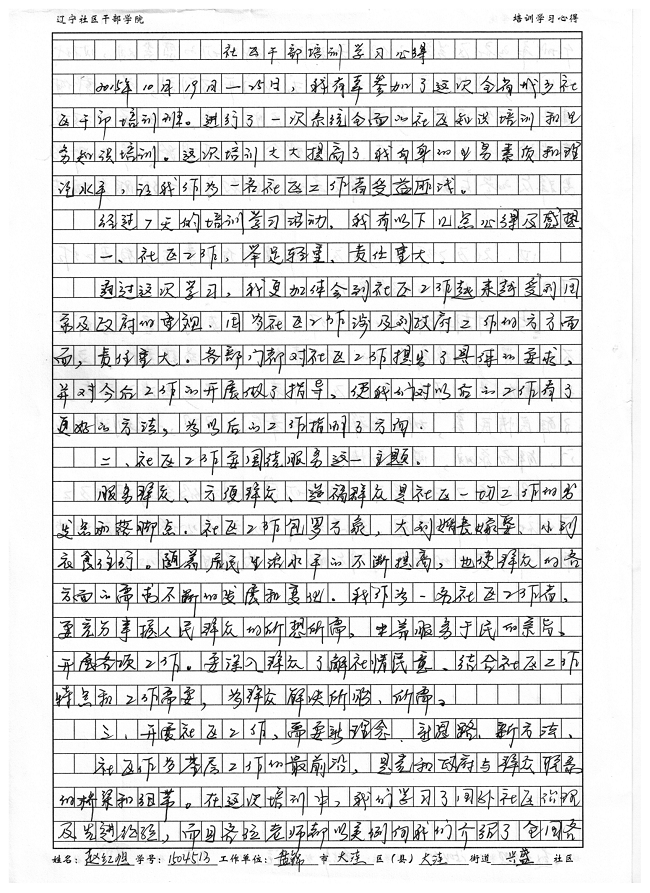 辽宁社区干部学院 培训学习心得
社区干部培训学习心得
2015年10月19日—25日，我有幸参加了这次全省城乡社
区干部培训班。进行了一次系统全面的社区知识培训和业
务知识培训。这次培训大大提高了我自身的业务素质和理
论水平，让我作为一名社区工作者受益匪浅。
经过7天的培训学习活动，我有以下几点心得及感想
一、社区工作，举足轻重，责任重大.
通过这次学习，我更加体会到社区工作越来越受到国
家及政府的重视.因为社区工作涉及到政府工作的方方面
面，责任重大.各部门都对社区工作提出了具体的要求，
并对今后工作的开展做了指导，使我们对以后的工作有了
更好的方法，为以后的工作指明了方向.
二、社区工作要围绕服务这一主题。
服务群众、方便群众、造福群众是社区一切工作的出
发点和落脚点.社区工作包罗万象，大到婚丧嫁娶，小到
衣食住行。随着居民生活水平的不断提高，也使群众的各
方面的需求不断的发展和变化.我作为一名社区工作者，
要充分掌握人民群众的所想所需，坐着服务于民的宗旨，
开展各项工作。要深入群众了解社情民意、结合社区工作
特点和工作需要，为群众解决所盼、所需。
三、开展社区工作，需要新理念、新思路、新方法.
社区作为基层工作的最前沿，是党和政府与群众联系
的桥梁和纽带。在这次培训中，我们学习了国外社区治理
及先进经验，而且各位老师都以实例向我们介绍了全国各
姓名：赵红旭 学号：1504513 工作单位：盘锦 市 大洼 区（县）大洼 街道 兴盛 社区